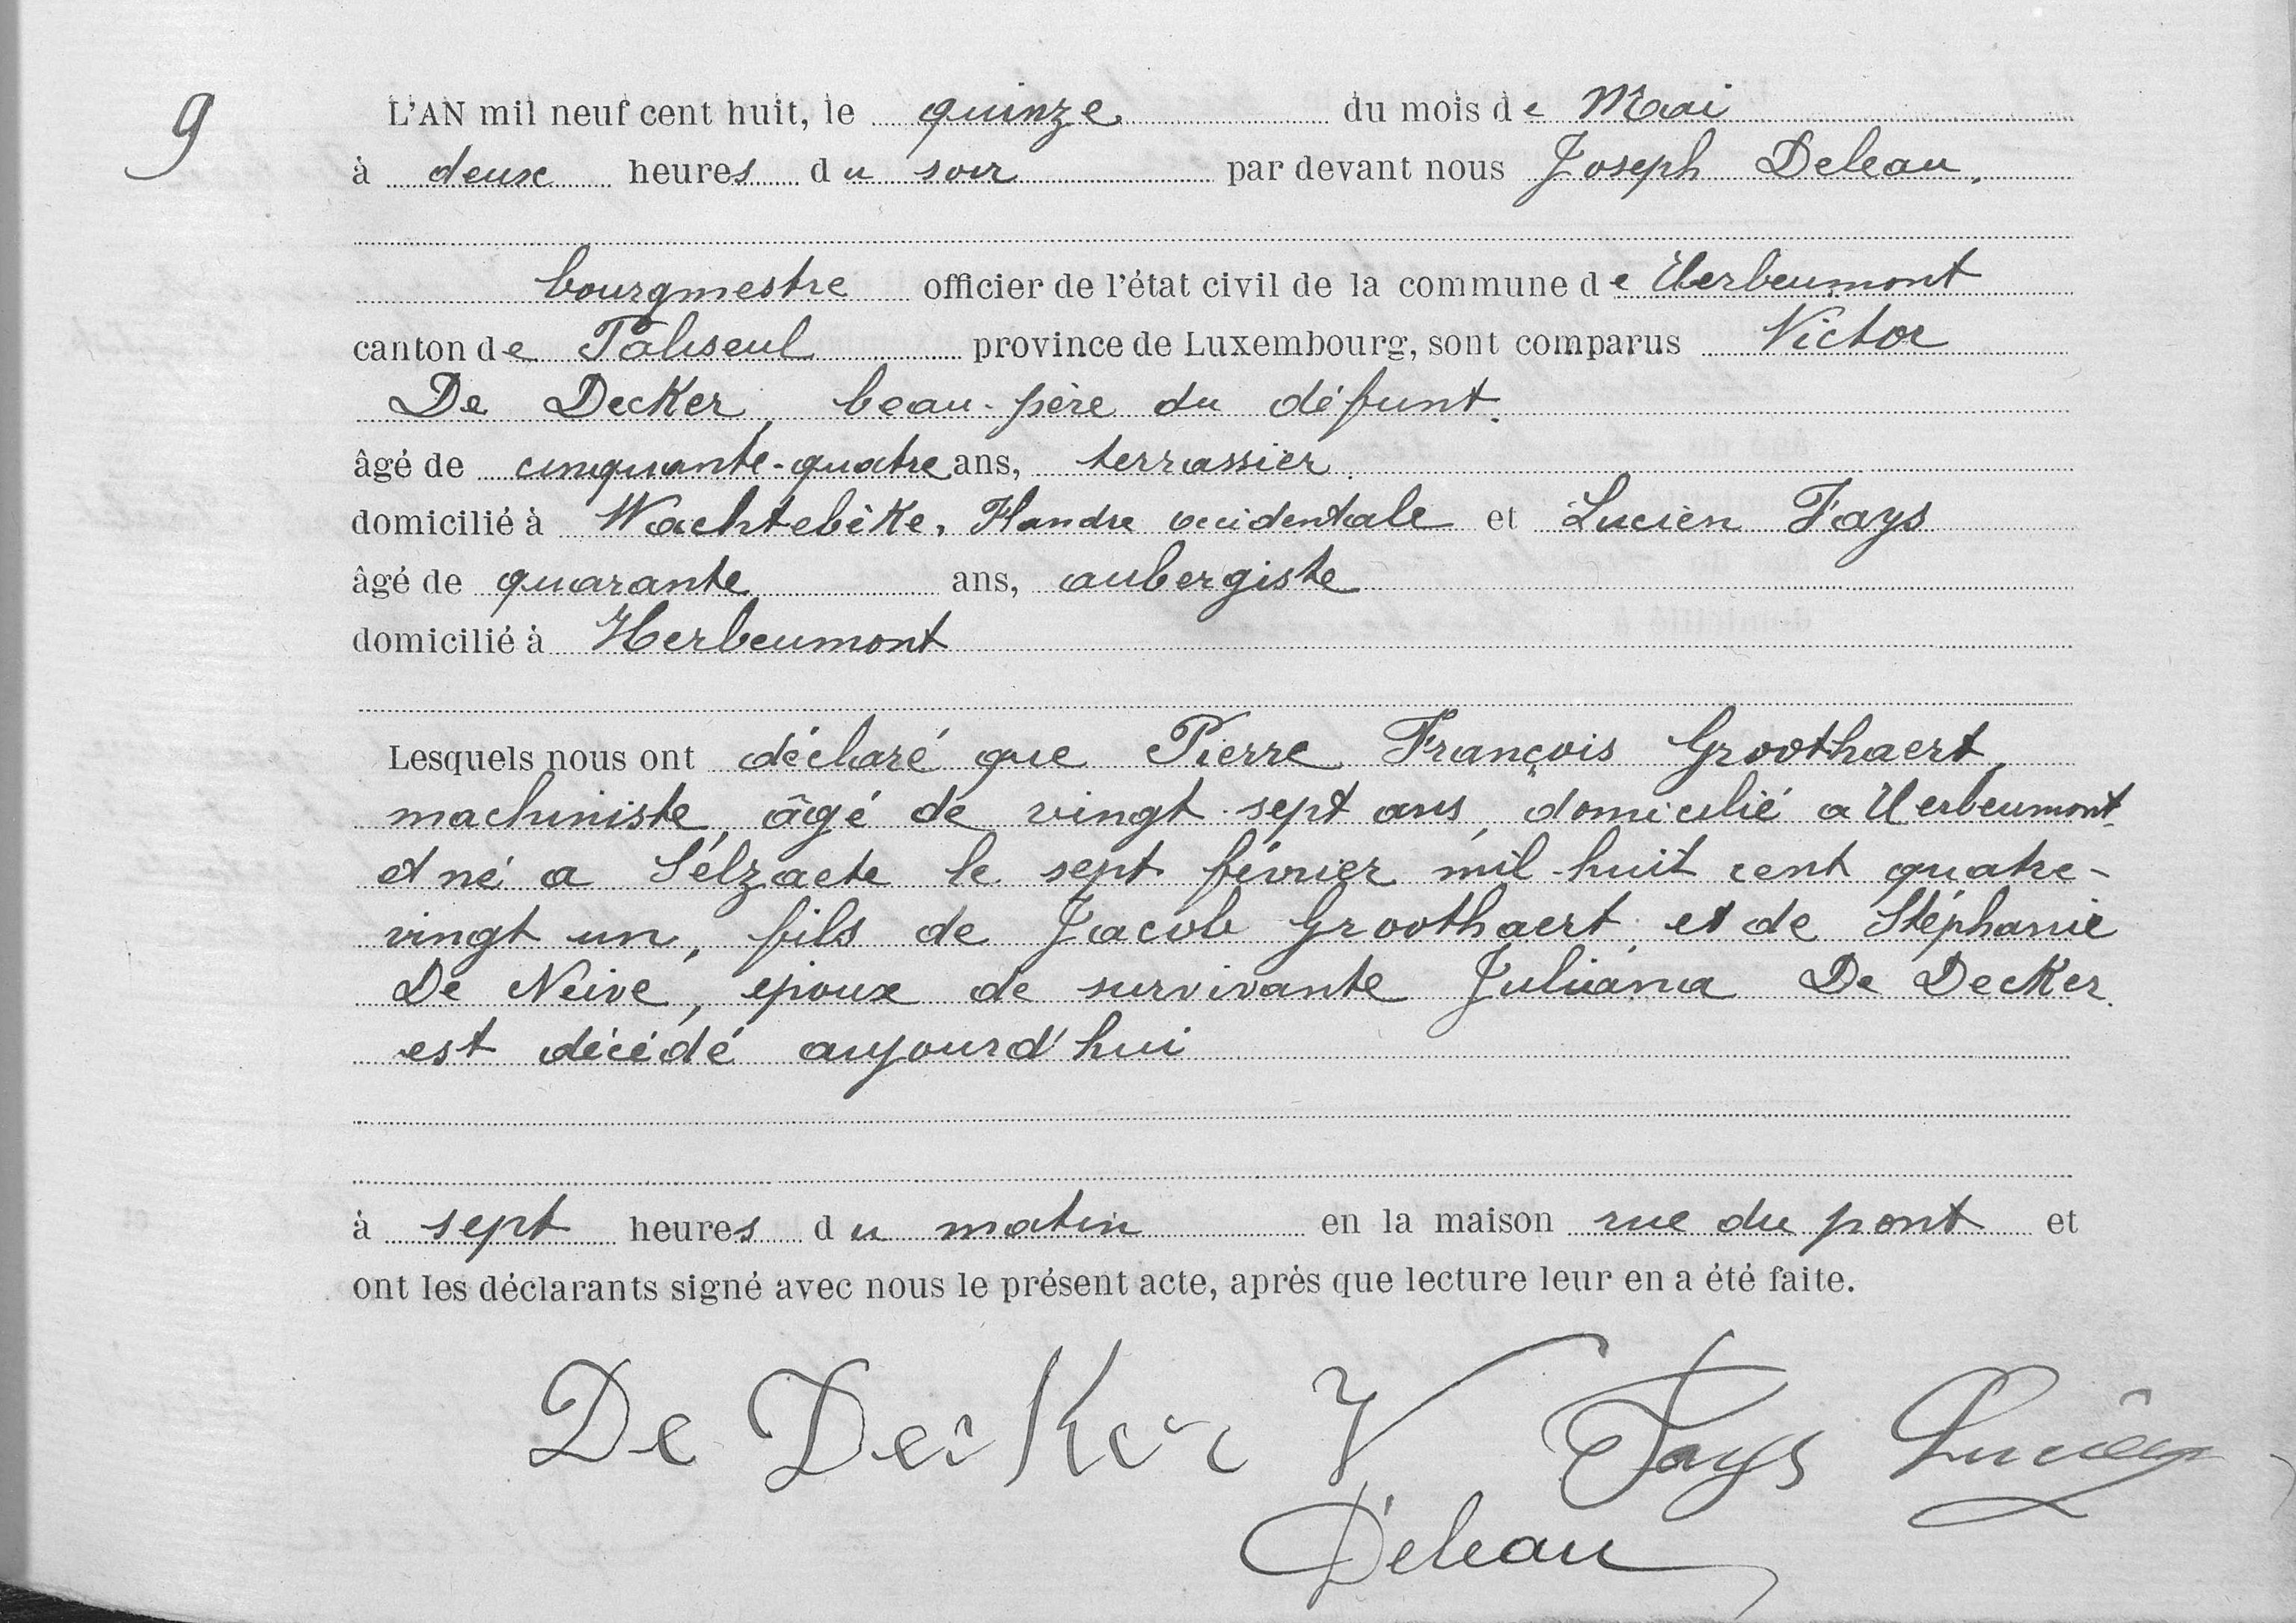 9
L'AN mil neuf cent huit, le quinze du mois de Mai
à deux heures du soir par devant nous Joseph Deleau,
bourgmestre officier de l'état civil de la commune de Herbeumont
canton de Paliseul province de Luxembourg, sont comparus Victor
De Decker, beau-père du défunt.
âgé de cinquante-quatre ans, terrassier
domicilié à Wachtebèke, Flandre occidentale et Lucien Fays
âgé de quarante ans, aubergiste
domicilié à Herbeumont
Lesquels nous ont déclaré que Pierre François Groothaert,
machiniste, âgé de vingt-sept ans, domicilié a Herbeumont
et né a Sélzaete le sept février mil-huit cent quatre-
vingt un, fils de Jacob Groothaert et de Stéphanie
De Neive, époux de survivante Juliana De Decker.
est décédé aujourd'hui
à sept heures du matin en la maison rue du pont et
ont les déclarants signé avec nous le présent acte, après que lecture leur en a été faite.
De Decker V Fays Lucien
Deleau